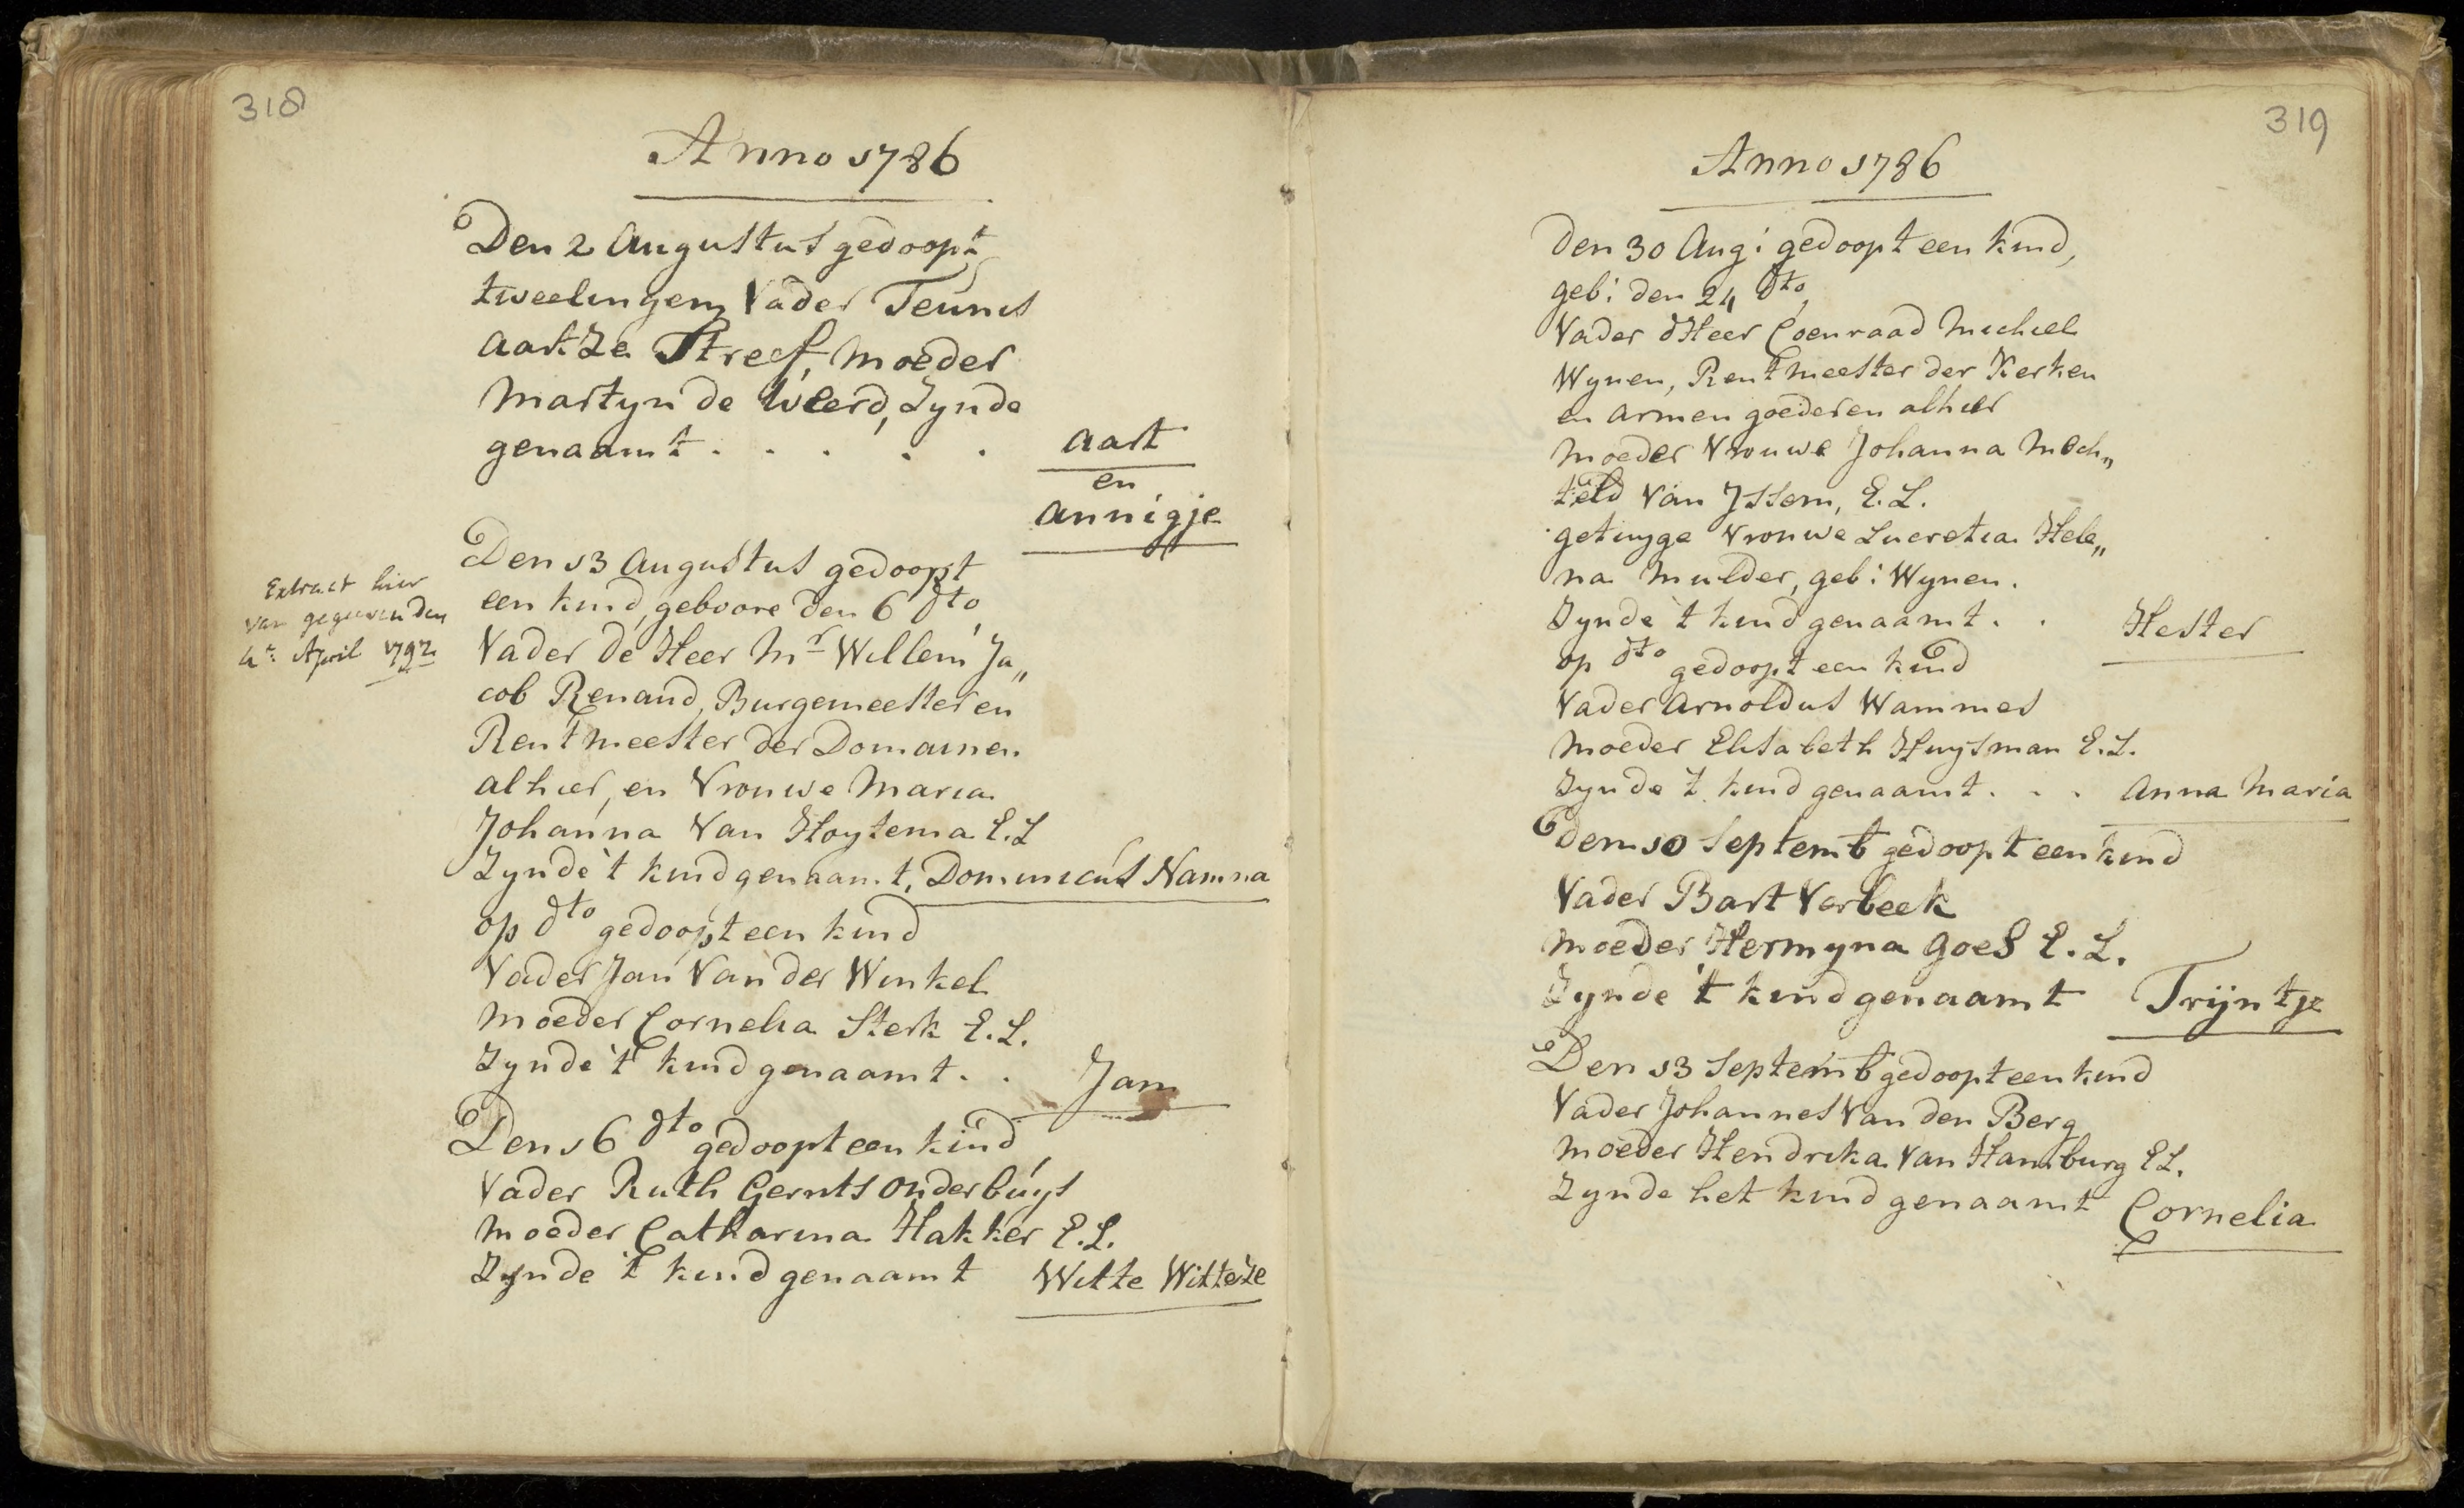 318
Anno 1786
Den 2 Augustus gedoopt
tweelingen, Vader Teunis
Aartze Streef, Moeder
Martyn de Weerd, Zynde
genaamt . . . . . Aart
en
Annigje
Den 13 Augustus gedoopt
een kind, geboore den 6 dto
Vader de Heer Mr Willem Ja„
cob Renaud, Burgemeester en
Rentmeester der Domainen
alhier, en Vrouwe Maria
Johanna Van Hoytema E.L
Zynde 't kind genaamt, Dominicus Namna
Extract hier
van gegeven den
4e: April 1792
op dto gedoopt een kind
Vader Jan Van der Winkel
Moeder Cornelia Sterk E.L.
Zynde 't kind genaamt . . Jan
Den 16 dto gedoopt een kind
Vader Ruth Gerrits Onderbuys
Moeder Catharina Hakker E.L.
Zynde 't kind genaamt Witte Witteze
319
Anno 1786
Den 30 Aug: gedoopt een kind,
geb: den 24 dto
Vader d'Heer Coenraad Michiel
Wynen, Rentmeester der Kerken
en Armen goederen alhier
Moeder Vrouwe Johanna Mech„
teld Van Jssem, E.L.
getuyge Vrouwe Lucretia Hele„
na Mulder, geb: Wynen.
Zynde 't kind genaamt . . Hester
op dto gedoopt een kind
Vader Arnoldus Wammes
Moeder Elisabeth Huysman E.L.
Zynde 't kind genaamt . . . Anna Maria
Den 10 Septemb gedoopt een kind
Vader Bart Verbeek
Moeder Hermyna Goes E.L.
Zynde 't kind genaamt Trijntje
Den 13 Septemb gedoopt een kind
Vader Johannes Van den Berg
Moeder Hendrika Van Hamburg EL.
Zynde het kind genaamt Cornelia